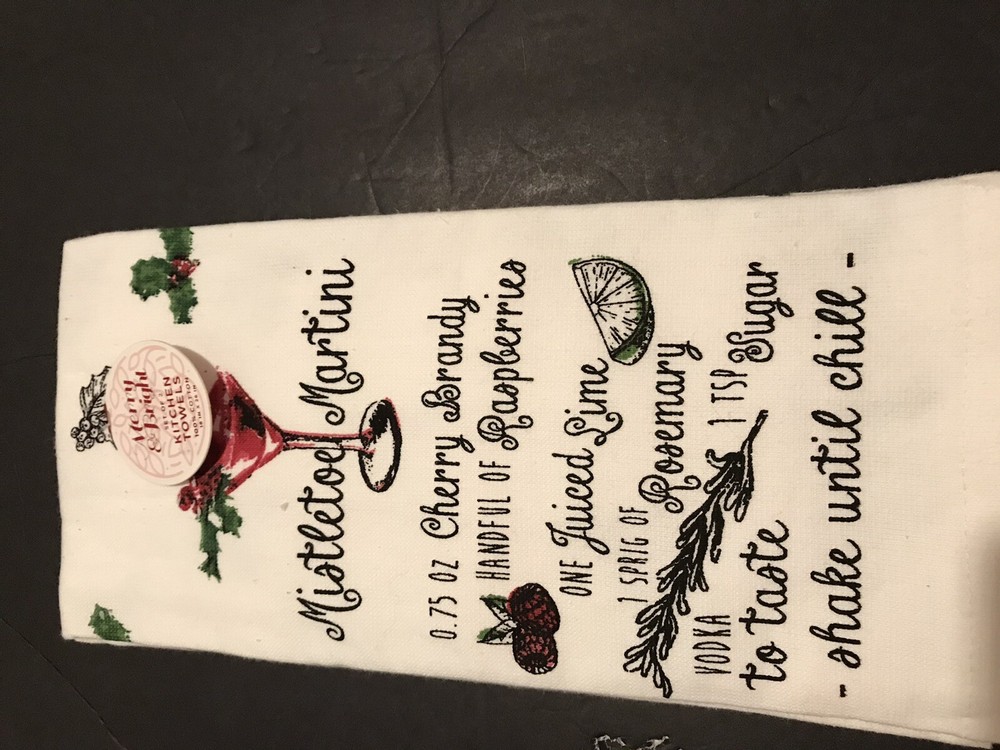 Merry
& Bright
SET OF 2
KITCHEN
TOWELS
100% COTTON
Mistletoe Martini
0.75 OZ Cherry Brandy
HANDFUL OF Raspberries
ONE Juiced Lime
1 SPRIG OF Rosemary
VODKA to taste
1 TSP Sugar
- shake until chill -